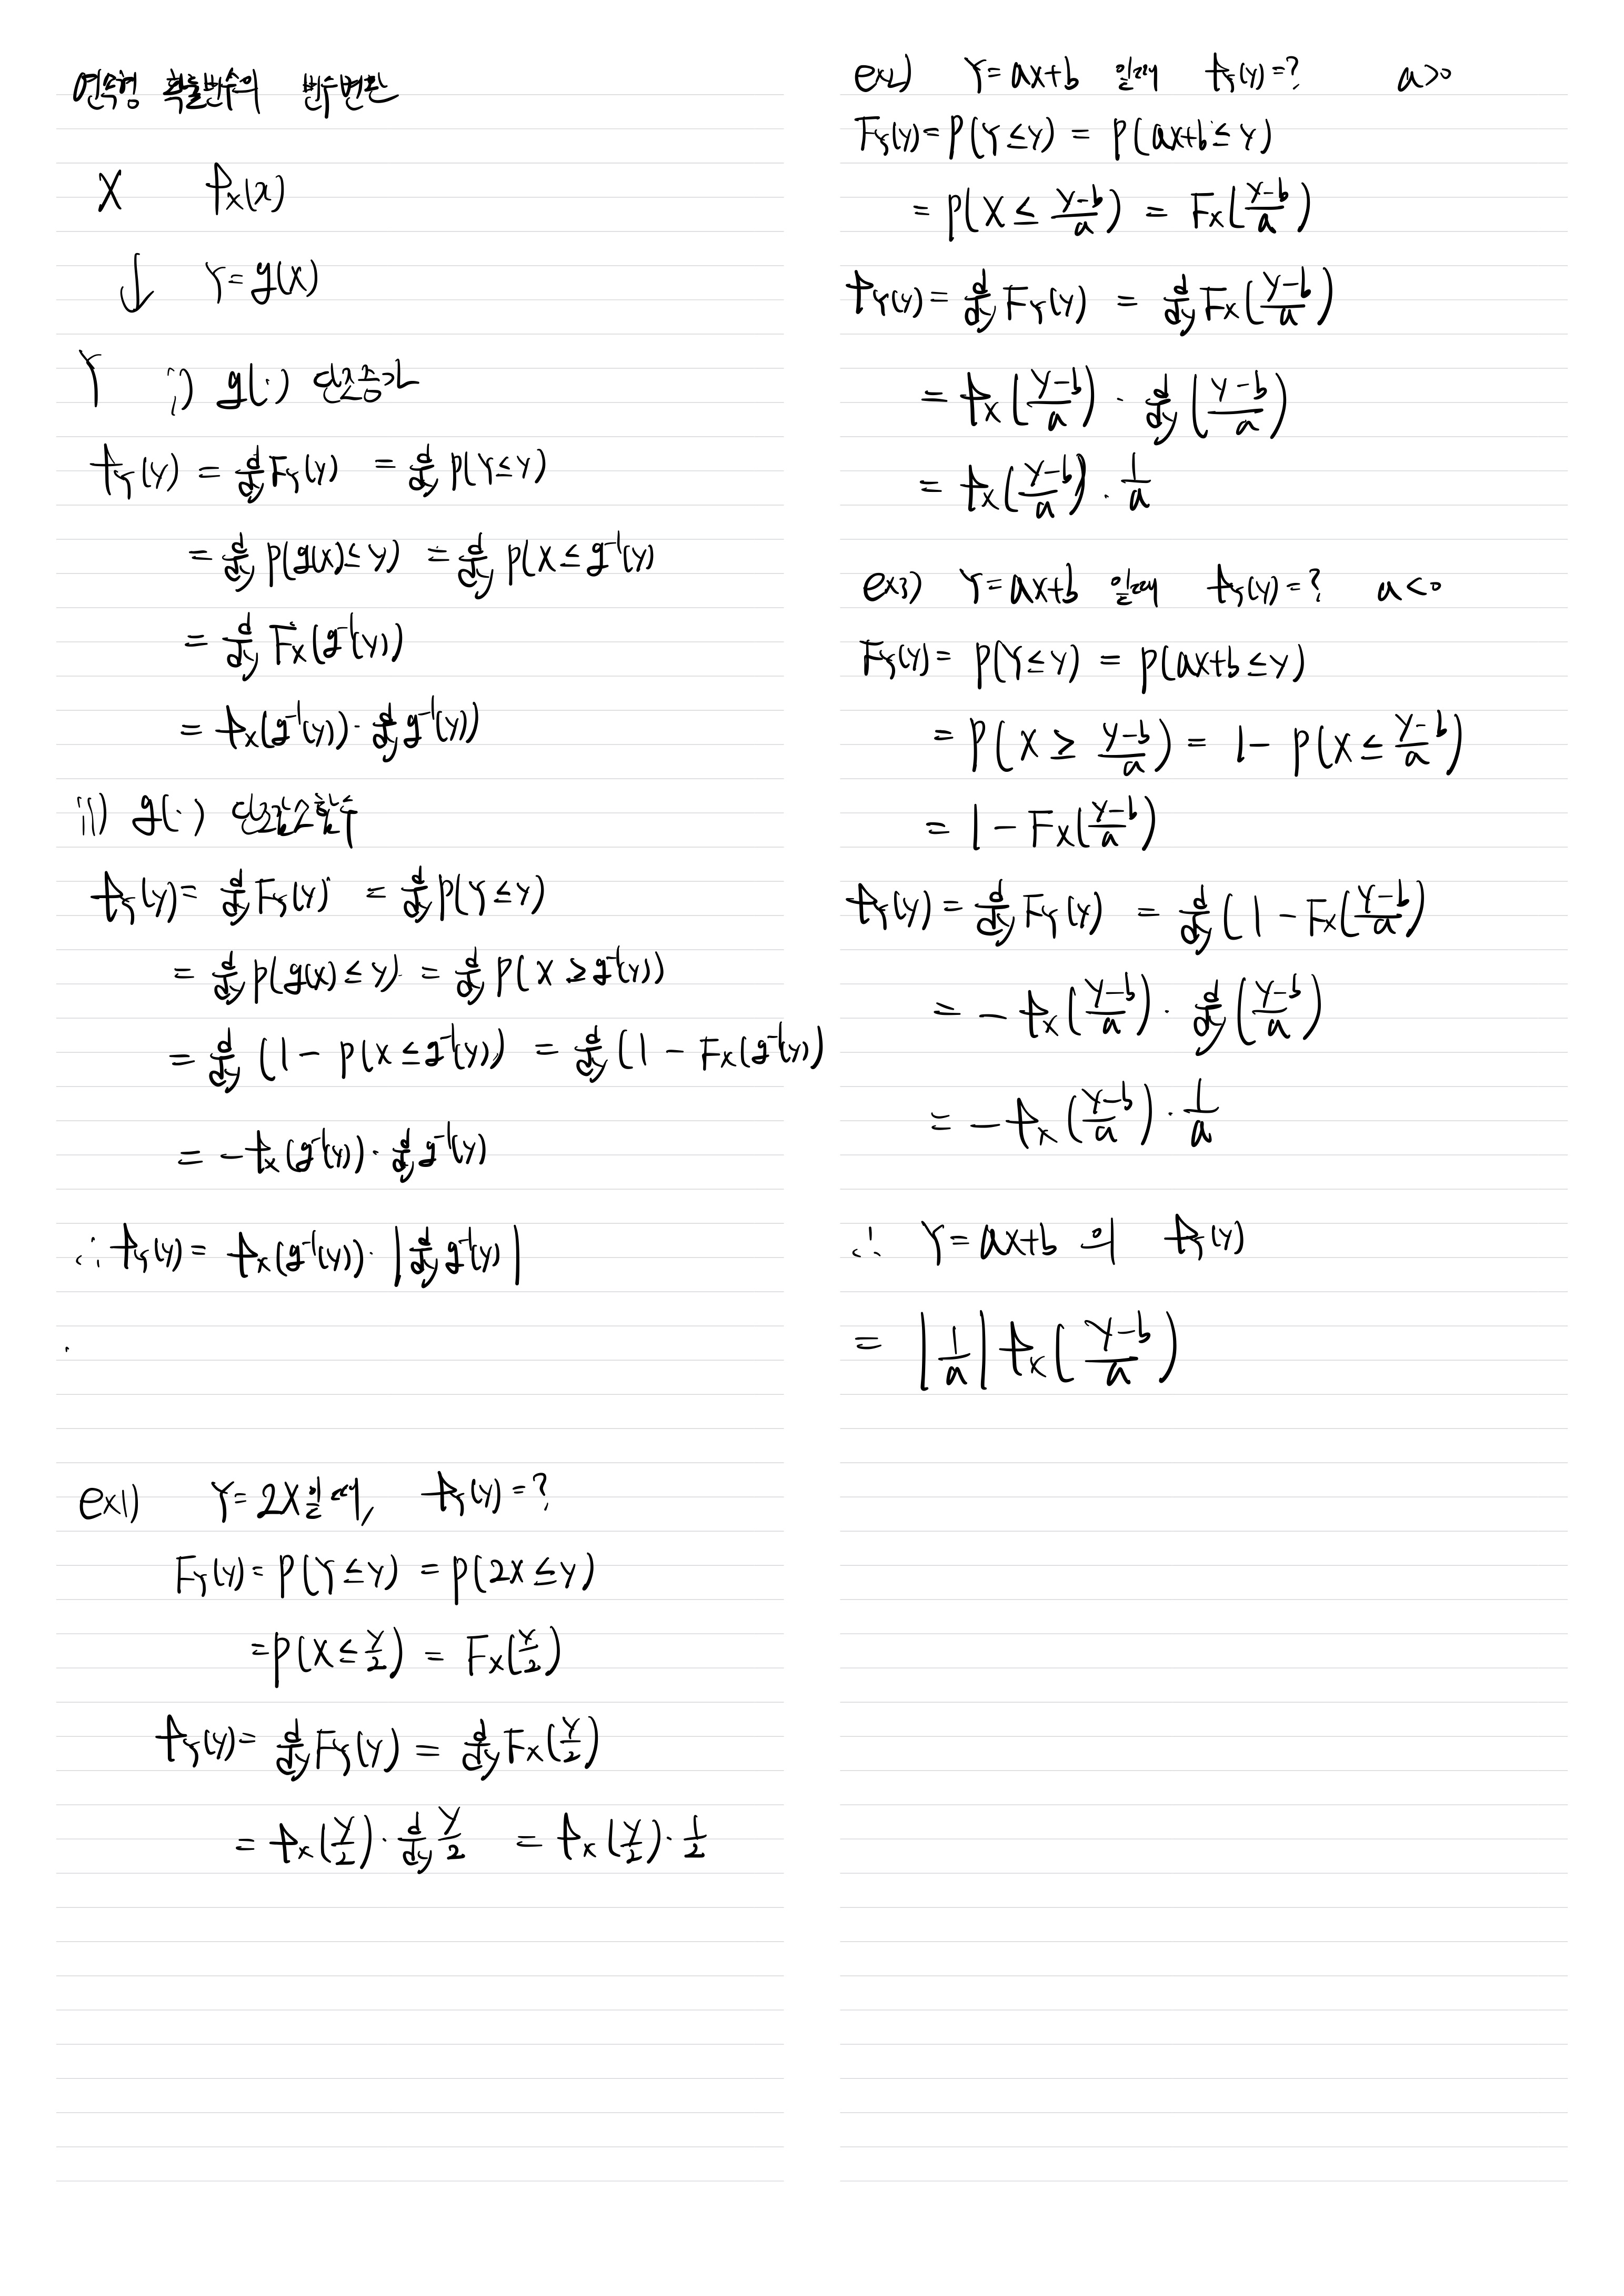 연속형 확률변수의 변수변환
X f_X(x)
↓ Y=g(X)
Y i) g(·) 단조증가
f_Y(y) = d/dy F_Y(y) = d/dy P(Y≤y)
= d/dy P(g(x)≤y) = d/dy P(X≤g⁻¹(y)
= d/dy F_X(g⁻¹(y))
= f_X(g⁻¹(y))· d/dy g⁻¹(y))
ii) g(·) 단조감소함수
f_Y(y) = d/dy F_Y(y) = d/dy P(Y≤y)
= d/dy P(g(x)≤y) = d/dy P(X≥g⁻¹(y))
= d/dy (1 - P(X≤g⁻¹(y)) = d/dy (1 - F_X(g⁻¹(y))
= -f_X(g⁻¹(y))· d/dy g⁻¹(y)
∴ f_Y(y) = f_X(g⁻¹(y))· |d/dy g⁻¹(y)|
ex1) Y=2X일 때, f_Y(y)=?
F_Y(y) = P(Y≤y) = P(2X≤y)
= P(X≤y/2) = F_X(y/2)
f_Y(y) = d/dy F_Y(y) = d/dy F_X(y/2)
= f_X(y/2)· d/dy y/2 = f_X(y/2)· 1/2
ex2) Y=ax+b 일때 f_Y(y)=? a>0
F_Y(y) = P(Y≤y) = P(ax+b≤y)
= P(X≤(y-b)/a) = F_X((y-b)/a)
f_Y(y) = d/dy F_Y(y) = d/dy F_X((y-b)/a)
= f_X((y-b)/a) · d/dy((y-b)/a)
= f_X((y-b)/a) · 1/a
ex3) Y=ax+b 일때 f_Y(y)=? a<0
F_Y(y) = P(Y≤y) = P(ax+b≤y)
= P(X≥(y-b)/a) = 1 - P(X≤(y-b)/a)
= 1 - F_X((y-b)/a)
f_Y(y) = d/dy F_Y(y) = d/dy(1 - F_X((y-b)/a)
= -f_X((y-b)/a) · d/dy((y-b)/a)
= -f_X((y-b)/a) · 1/a
∴ Y=ax+b 의 f_Y(y)
= |1/a| f_X((y-b)/a)